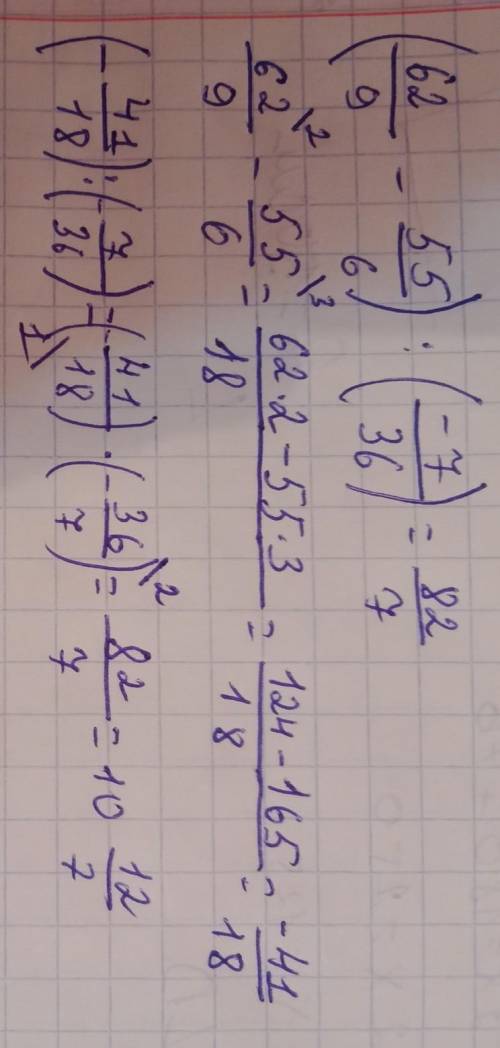 (62/9 - 55/6) : (-7/36) = 82/7
62/9 \2 - 55/6 \3 = 62·2 - 55·3/18 = 124 - 165/18 = -41/18
(-41/18) : (-7/36) = (-41/18) \1 · (-36/7) \2 = 82/7 = 10 12/7